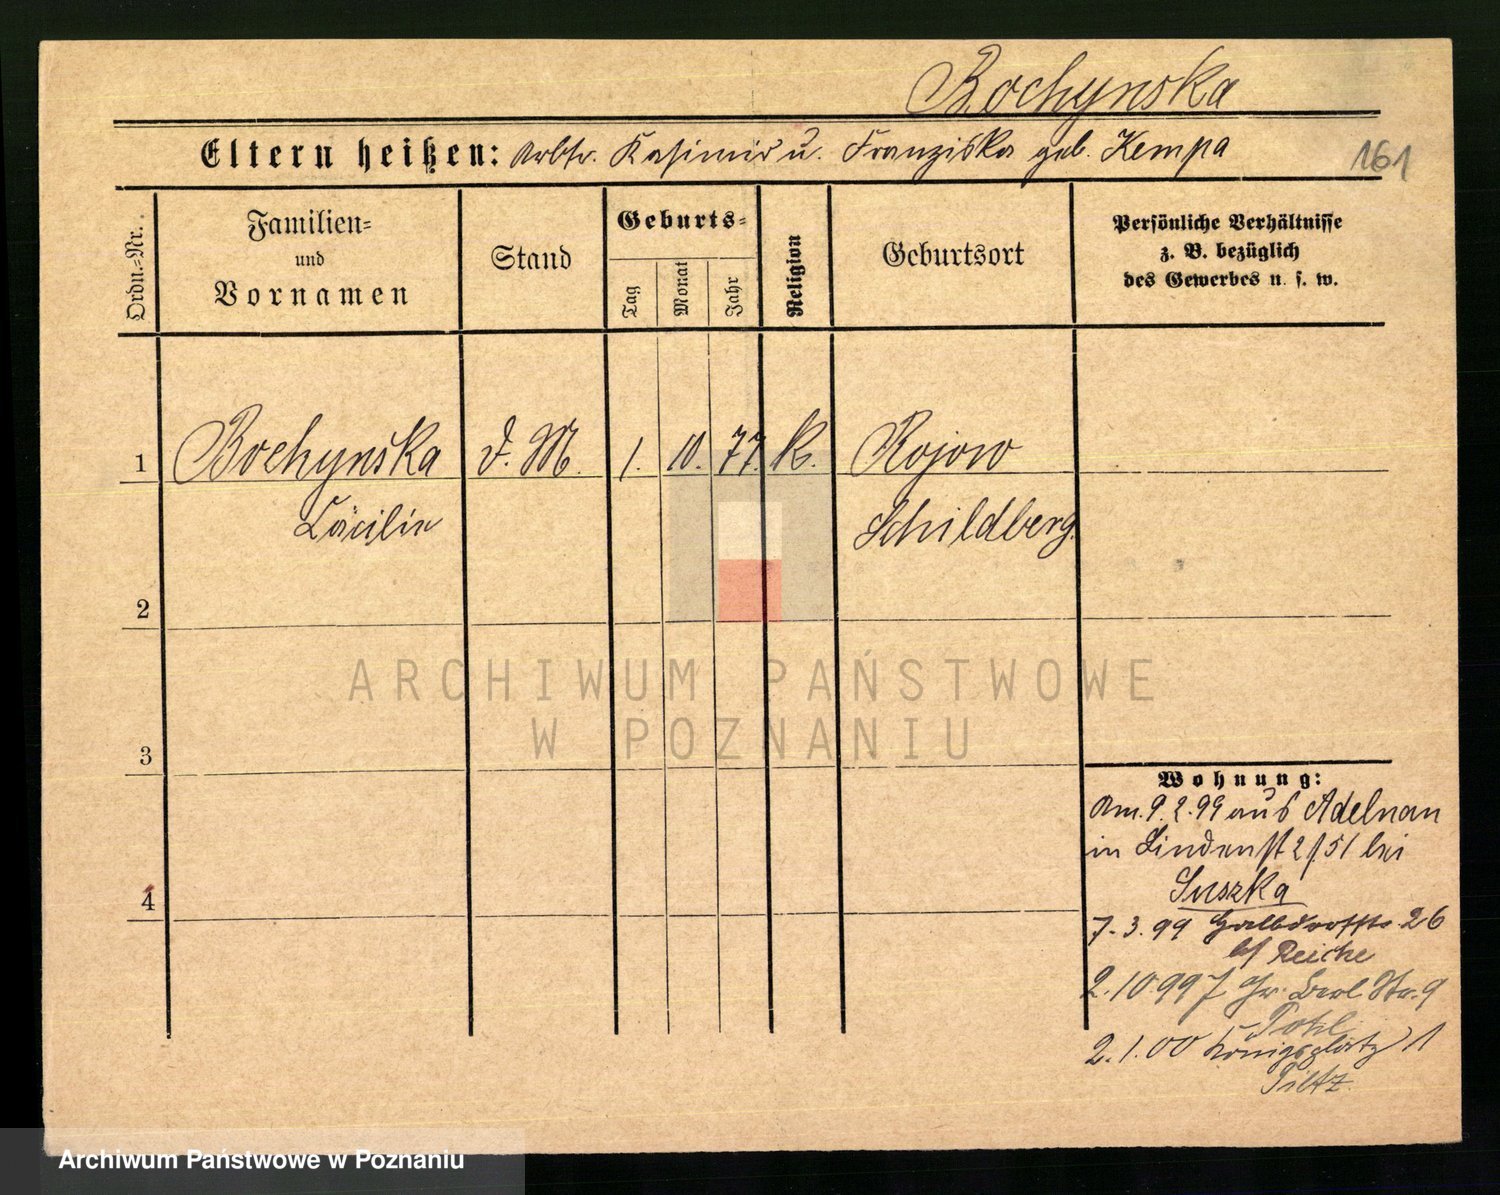 Bochynska
Eltern heißen: Arbtr. Kasimir u. Franziska geb. Kempa
161
Ordn.-Nr.
Familien-
und
Vornamen
Stand
Geburts-
Tag
Monat
Jahr
Religion
Geburtsort
Persönliche Verhältnisse
z. B. bezüglich
des Gewerbes u. s. w.
1
Bochynska
d. M.
1.
10.
77.
k.
Rojow
Cäcilie
Schildberg.
2
ARCHIWUM PAŃSTWOWE
W POZNANIU
3
4
Wohnung:
Am. 9.2.99 aus Adelnau
in Lindenst 2 / 51 bei
Suszka
7.3.99 Halbdorffstr. 26
b/ Reiche
2.10.99 Gr. Berl. Str. 9
Pohl
2.1.00 Königsplatz 1
Piltz.
Archiwum Państwowe w Poznaniu